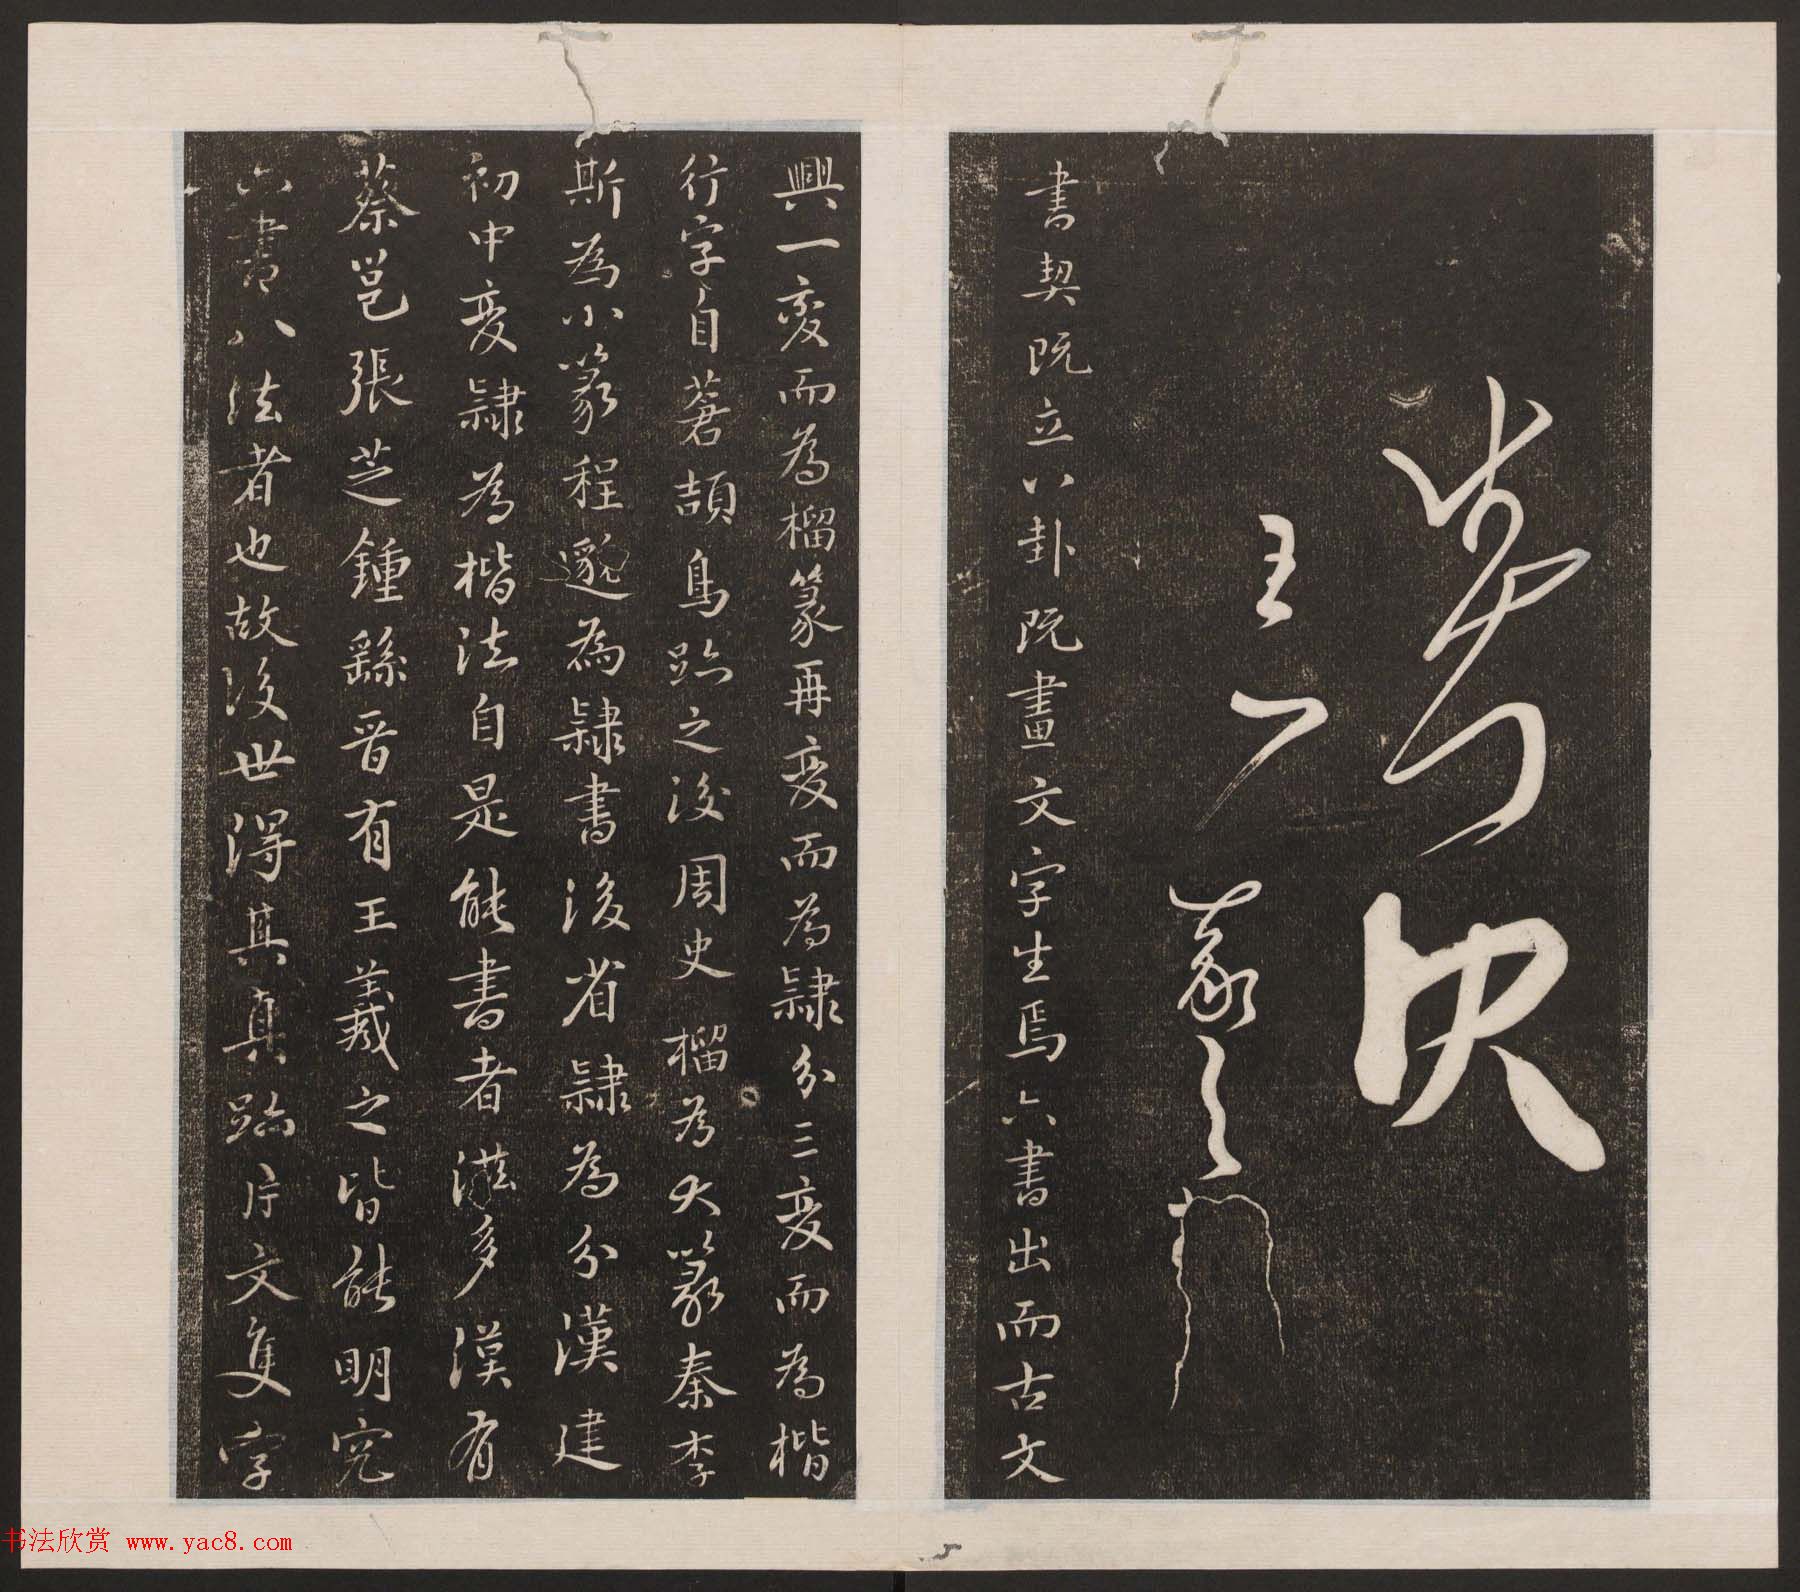 王羲之
書契既立八卦既畫文字生焉六書出而古文
興一變而為榴篆再變而為隸分三變而為楷
行字自蒼頡鳥跡之後周史榴為大篆秦李
斯為小篆程邈為隸書後省隸為分漢建
初中變隸為楷法自是能書者滋多漢有
蔡邕張芝鍾繇晉有王羲之皆能明究
六書八法者也故後世得其真跡片文隻字
书法欣赏 www.yac8.com